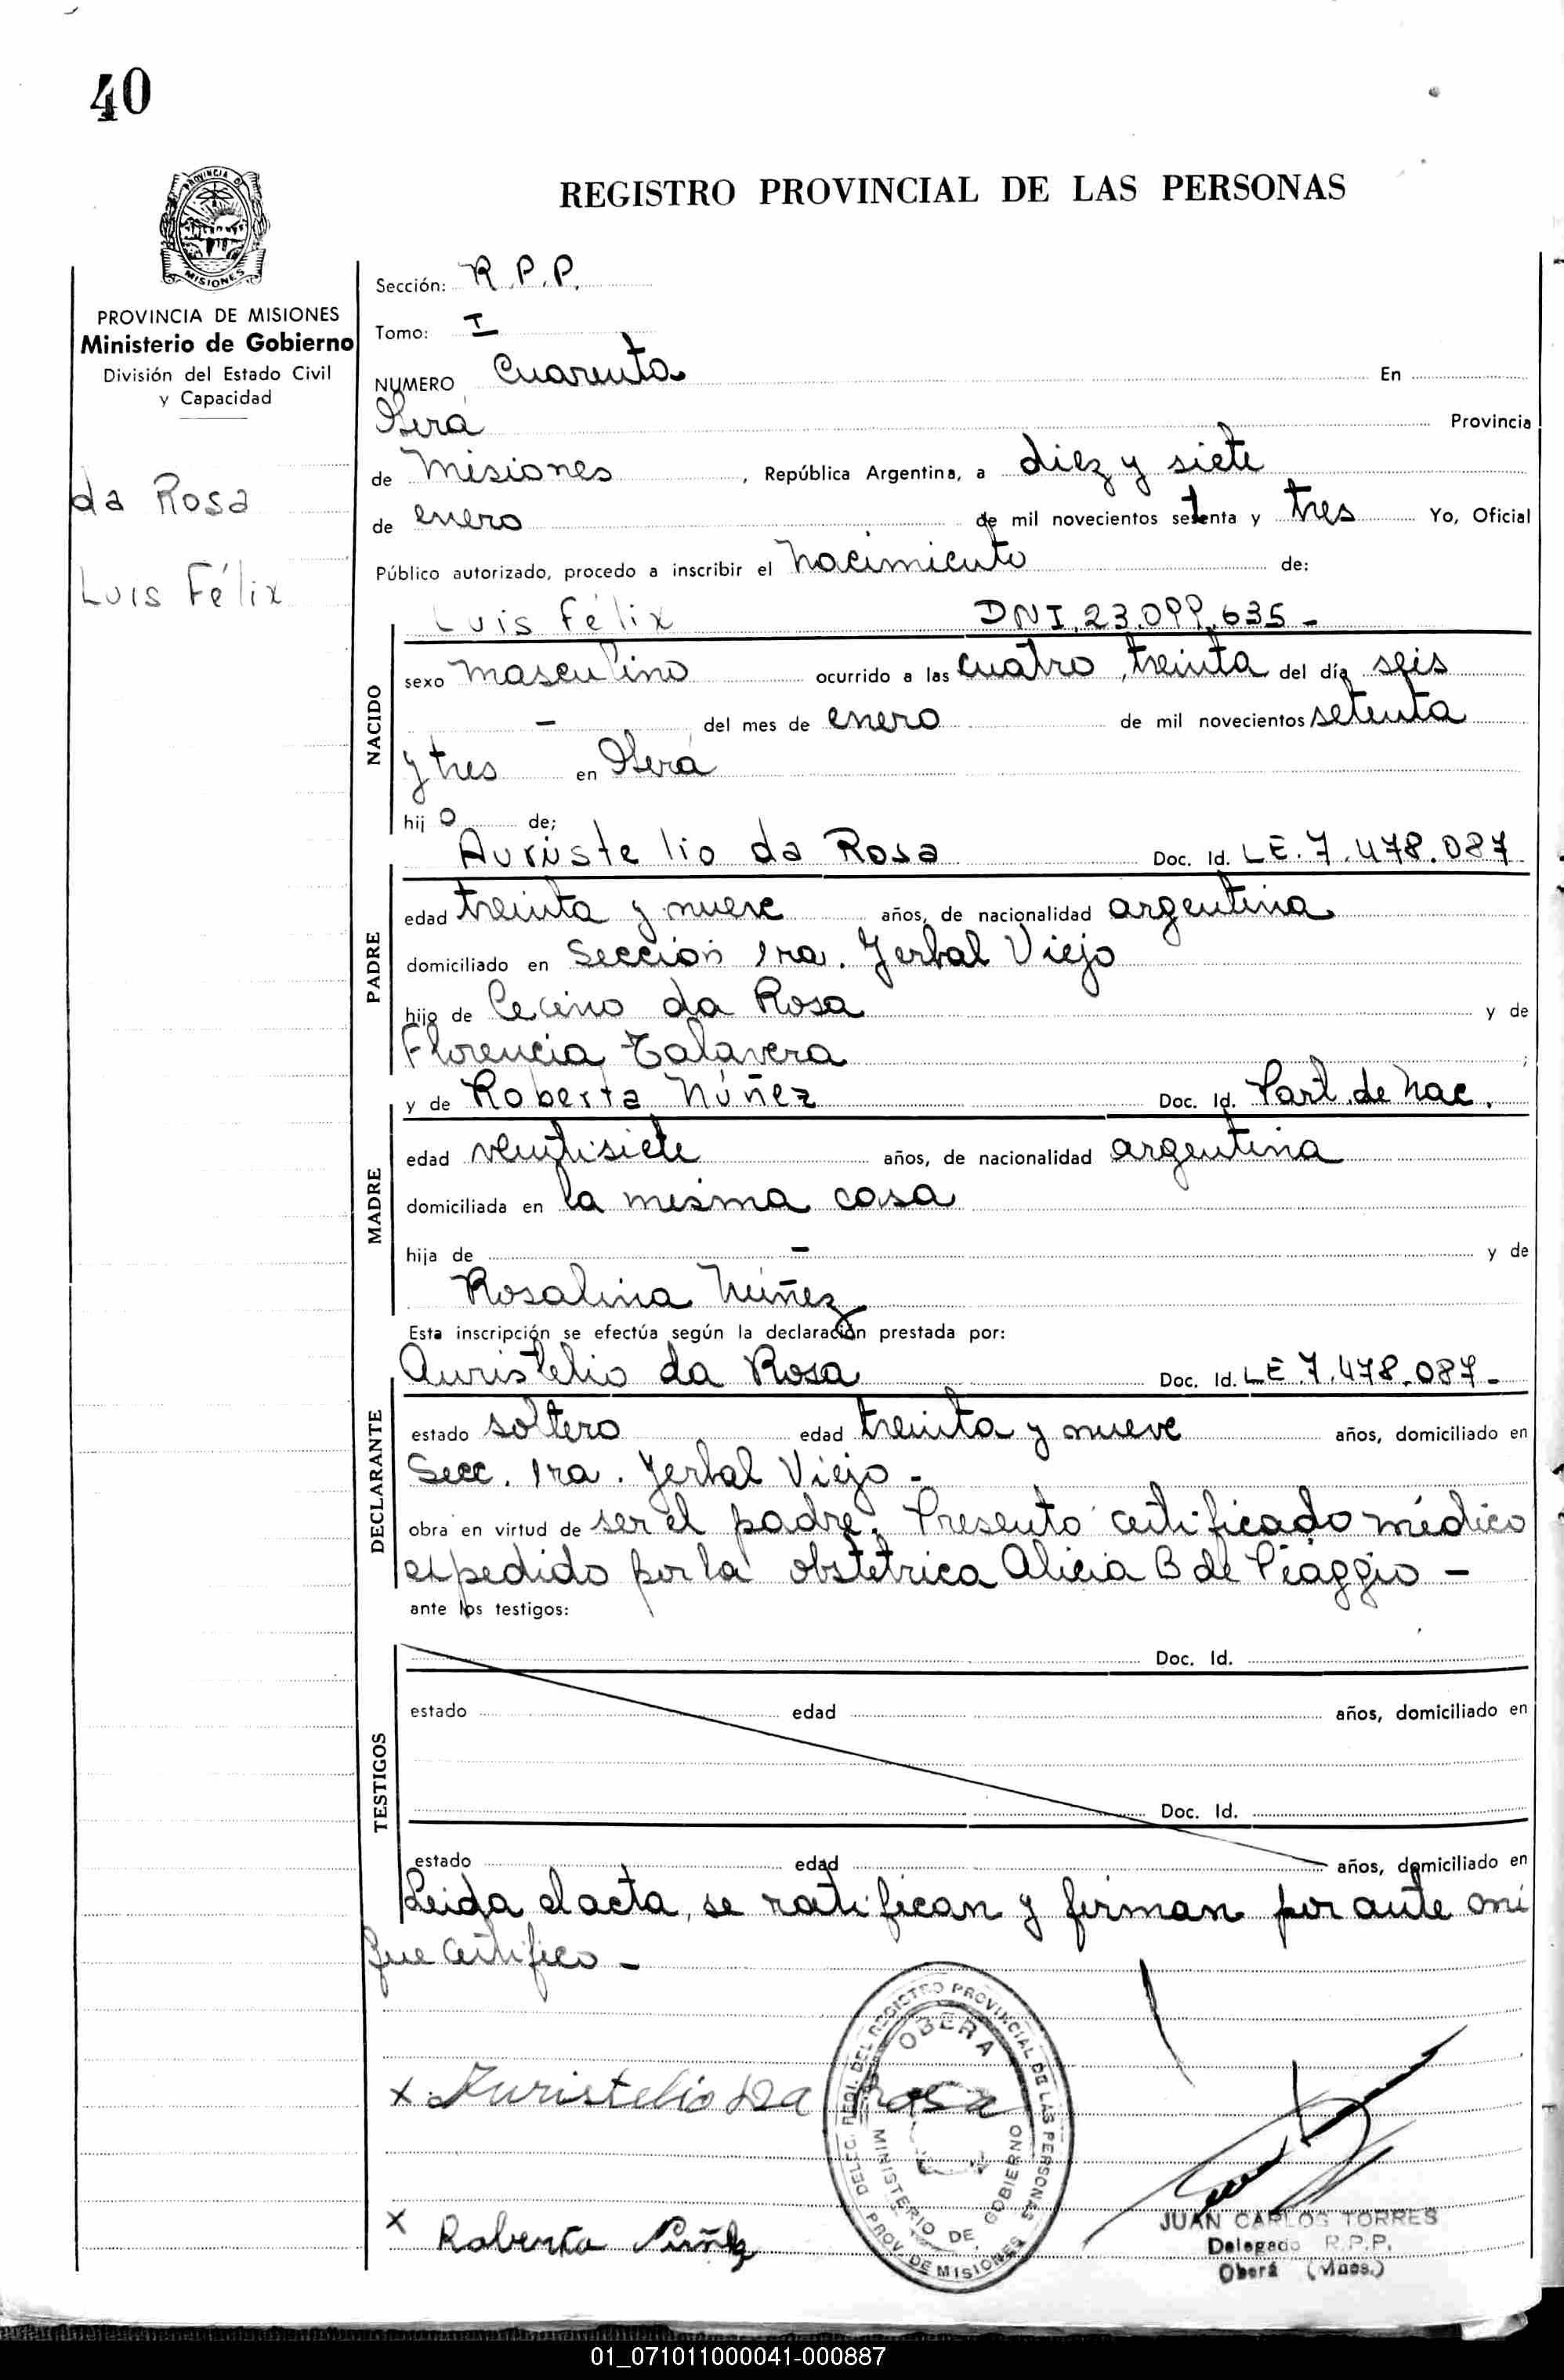 40
PROVINCIA DE MISIONES
REGISTRO PROVINCIAL DE LAS PERSONAS
PROVINCIA DE MISIONES
Ministerio de Gobierno
División del Estado Civil
y Capacidad
da Rosa
Luis Félix
Sección: R.P.P.
Tomo: I
NUMERO Cuarenta En
Oberá Provincia
de Misiones, República Argentina, a diez y siete
de enero de mil novecientos setenta y tres Yo, Oficial
Público autorizado, procedo a inscribir el nacimiento de:
NACIDO
Luis Félix DNI.23.099.635-
sexo masculino ocurrido a las cuatro, treinta del día seis
- del mes de enero de mil novecientos setenta
y tres en Oberá
hijo de;
PADRE
Auristelio da Rosa Doc. Id. LE.7.478.087
edad treinta y nueve años, de nacionalidad argentina
domiciliado en Sección 1ra. Yerbal Viejo
hijo de Cecino da Rosa y de
Florencia Talavera;
MADRE
y de Roberta Núñez Doc. Id. Part. de nac.
edad veintisiete años, de nacionalidad argentina
domiciliada en la misma casa
hija de - y de
Rosalina Núñez
Esta inscripción se efectúa según la declaración prestada por:
DECLARANTE
Auristelio da Rosa Doc. Id. LE.7.478.087-
estado soltero edad treinta y nueve años, domiciliado en
Secc. 1ra. Yerbal Viejo-
obra en virtud de ser el padre. Presento certificado médico
expedido por la obstétrica Alicia B de Piaggio -
ante los testigos:
TESTIGOS
Doc. Id.
estado edad años, domiciliado en
Doc. Id.
estado edad años, domiciliado en
Leida el acta, se ratifican y firman por ante mi
que certifico-
x Auristelio Da Rosa
x Roberta Núñez
DELEG. REDI. DEL REGISTRO PROVINCIAL DE LAS PERSONAS
OBERA
MINISTERIO DE GOBIERNO
PROV. DE MISIONES
JUAN CARLOS TORRES
Delegado R.P.P.
Oberá (Mnes.)
01_071011000041-000887